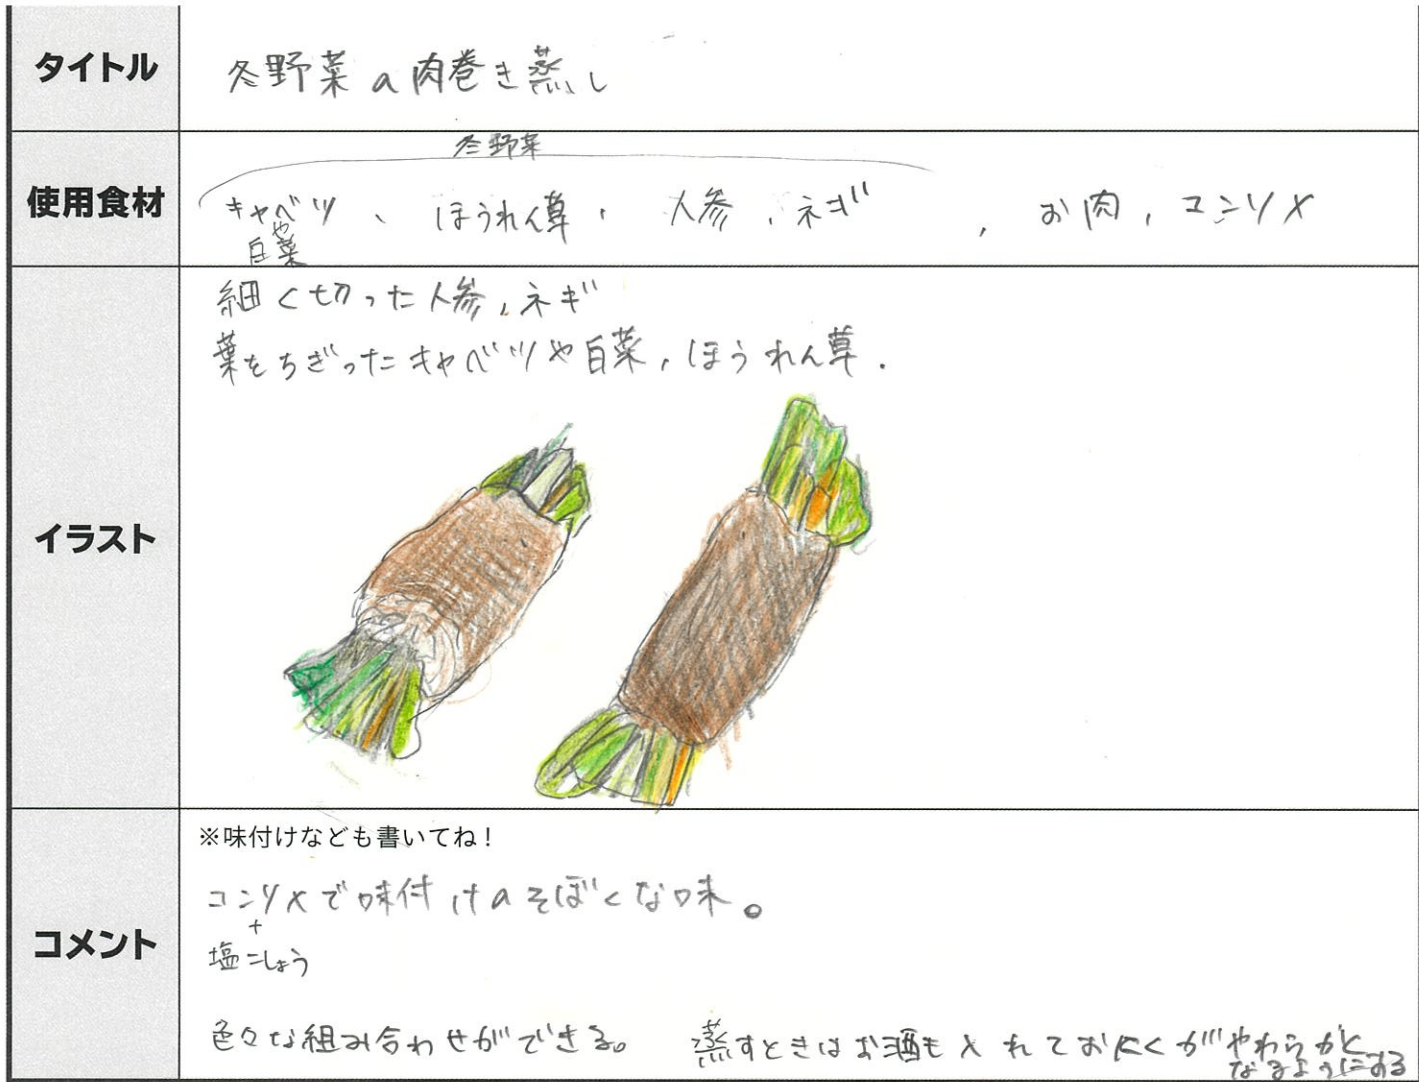 タイトル
冬野菜の肉巻き蒸し
使用食材
冬野菜
キャベツ、ほうれん草、人参、ネギ、お肉、コンソメ
や
白菜
イラスト
細く切った人参、ネギ
葉をちぎったキャベツや白菜、ほうれん草.
コメント
※味付けなども書いてね!
コンソメで味付けのそぼくな味。
+
塩こしょう
色々な組み合わせができる。 蒸すときはお酒も入れておにくがやわらかく
なるようにする